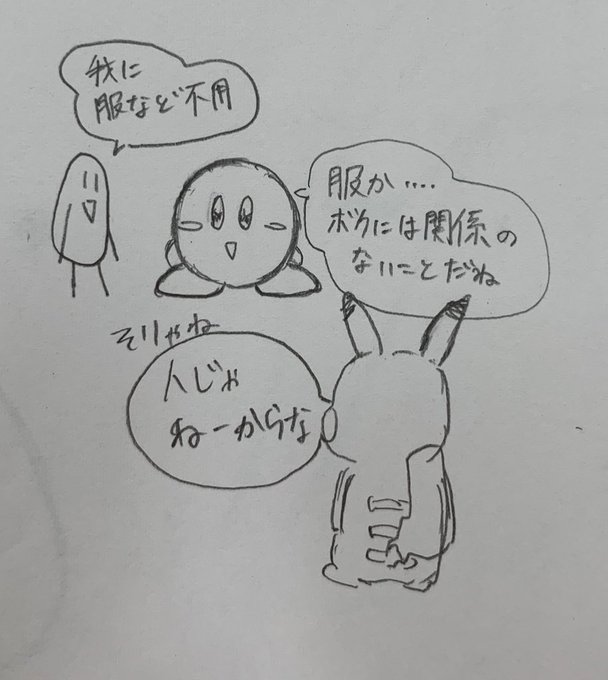 我に
服など不用
服か....
ボクには関係の
ないことだね
そりゃね
人じゃ
ねーからな